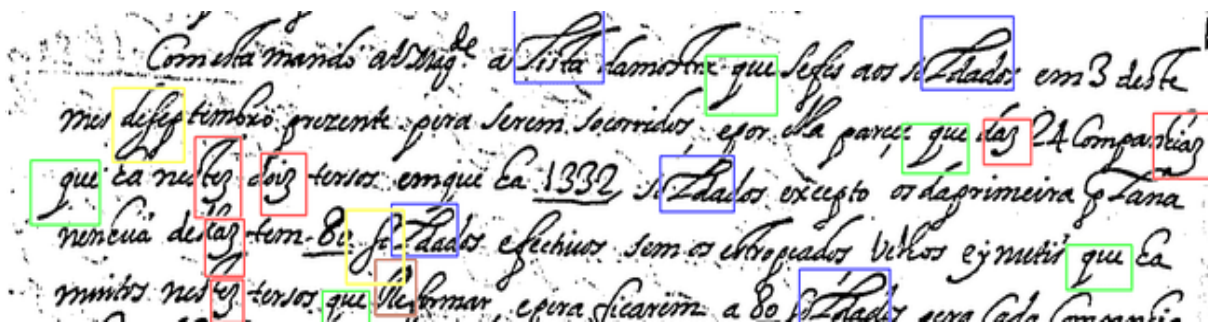 Com esta mando a V Mag.de a Lista damostra que sefes aos soldados em 3 deste
mes deseptembro prezente pera serem socorridos, epor ella pareçe que das 24 Companhias
que ha nestes dois tersos emque ha 1332 soldados excepto os daprimeira plana
nenhuã destas tem 80 soldados efectivos sem os estropeados Velhos e que ha
muitos nestes tersos que Reformar, epera ficarem a 80 soldados pera Cada Companhia